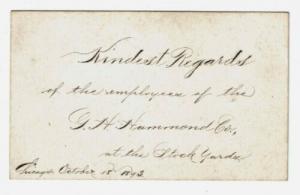 Kindest Regards
of the employees of the
G. H. Hammond Co,
at the Stock Yards
October 15 1893